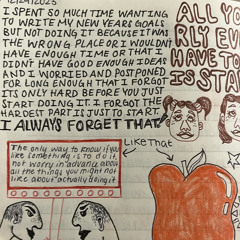 12/24/2023
I SPENT SO MUCH TIME WANTING
TO WRITE MY NEW YEARS GOALS
BUT NOT DOING IT BECAUSE IT WAS
THE WRONG PLACE OR I WOULDN'T
HAVE ENOUGH TIME OR THAT I
DIDN'T HAVE GOOD ENOUGH IDEAS
AND I WORRIED AND POSTPONED
FOR LONG ENOUGH THAT I FORGOT
ITS ONLY HARD BEFORE YOU JUST
START DOING IT. I FORGOT THE
HARDEST PART IS JUST TO START.
I ALWAYS FORGET THAT.
ALL YO
RLY EV
HAVE TO
IS STA
The only way to know if you
like something is to do it,
not worry in advance about
all the things you might not
like about actually doing it.
Like That